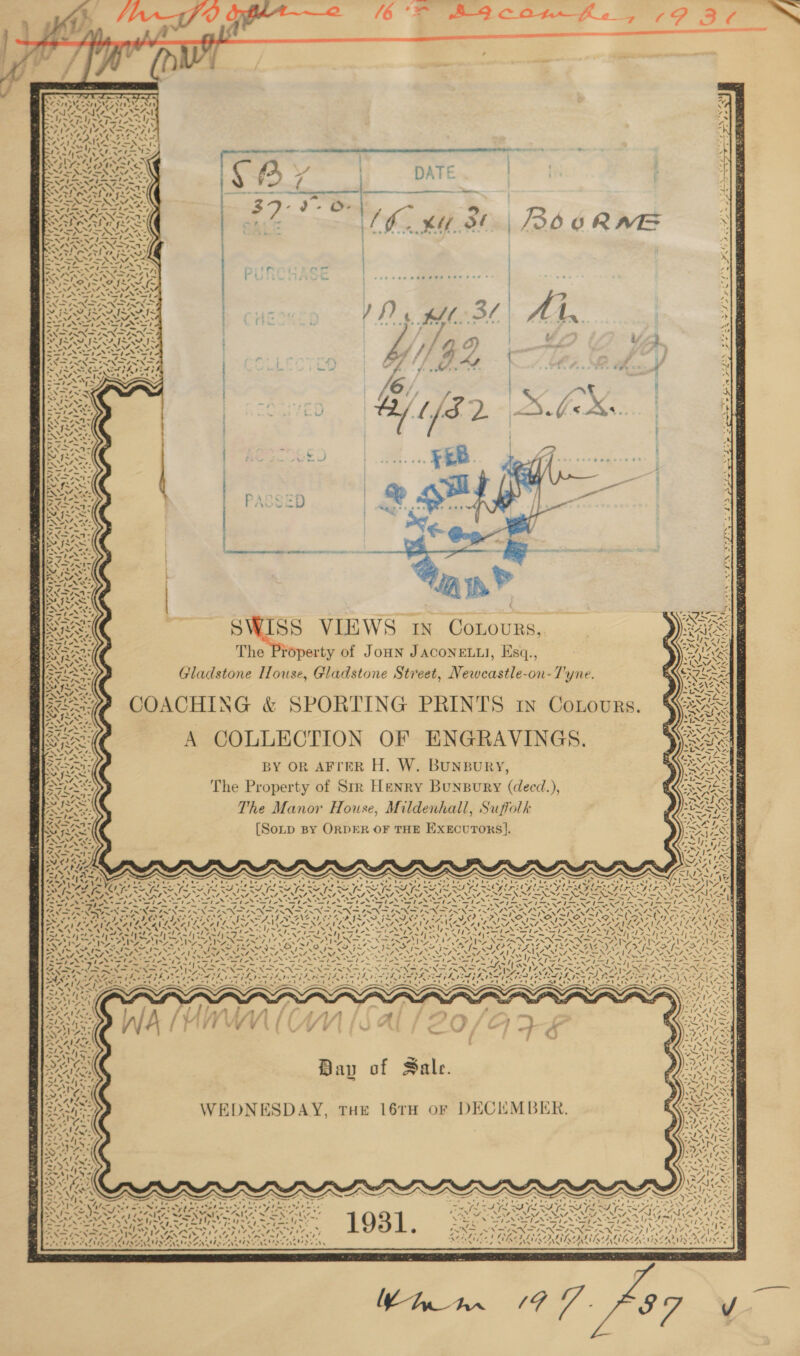 16th December, 1931
DATE
37-5-0
SALE
16. xii. 31
BOORNE
PURCHASE
CHECKED
31
COLLECTED
4/1/32
RECEIVED
4/1/32
FEB
PASSED
SWISS VIEWS IN COLOURS,
The Property of JOHN JACONELLI, Esq.,
Gladstone House, Gladstone Street, Newcastle-on-Tyne.
COACHING & SPORTING PRINTS IN COLOURS.
A COLLECTION OF ENGRAVINGS.
BY OR AFTER H. W. BUNBURY,
The Property of SIR HENRY BUNBURY (decd.),
The Manor House, Mildenhall, Suffolk
[SOLD BY ORDER OF THE EXECUTORS].
WA/HMM/CM/Sal/20/978
Day of Sale.
WEDNESDAY, THE 16TH OF DECEMBER.
1931.